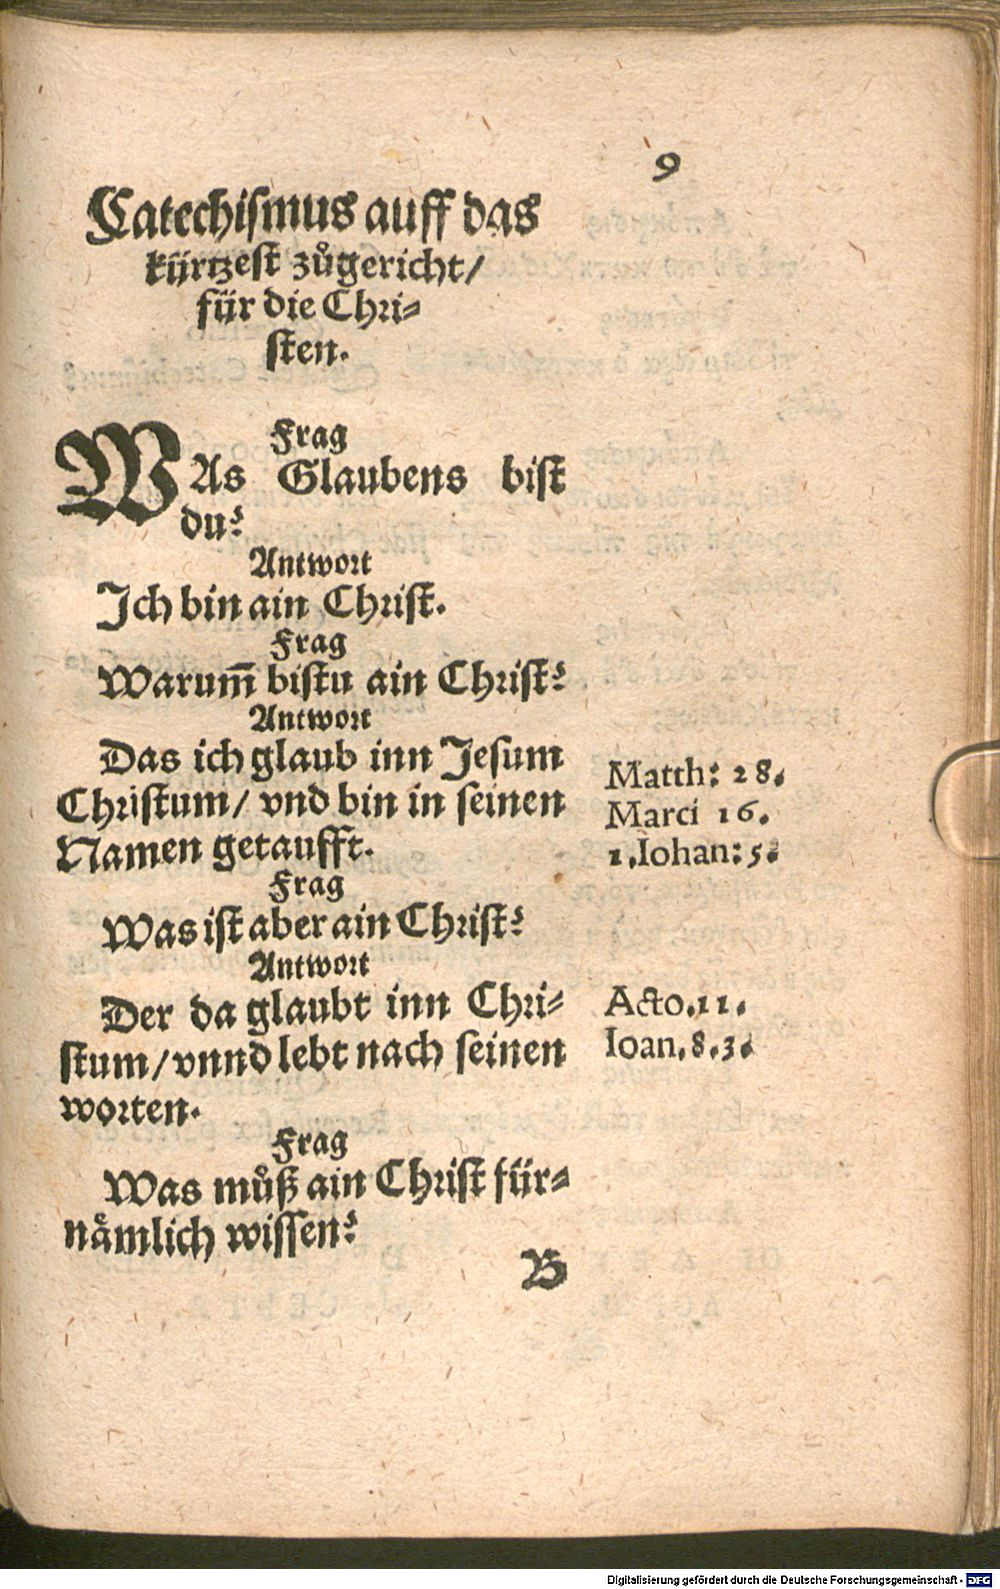 9
Catechismus auff das
kürtzest zůgericht/
für die Chri-
sten.
Frag
WAs Glaubens bist
du?
Antwort
Ich bin ain Christ.
Frag
Warum̃ bistu ain Christ?
Antwort
Das ich glaub inn Jesum
Christum/ vnd bin in seinen
Namen getaufft.
Matth: 28.
Marci 16.
1.Iohan: 5.
Frag
Was ist aber ain Christ?
Antwort
Der da glaubt inn Chri-
stum/vnnd lebt nach seinen
worten.
Acto.11.
Ioan.8.3.
Frag
Was můß ain Christ für-
nämlich wissen?
B
Digitalisierung gefördert durch die Deutsche Forschungsgemeinschaft - DFG